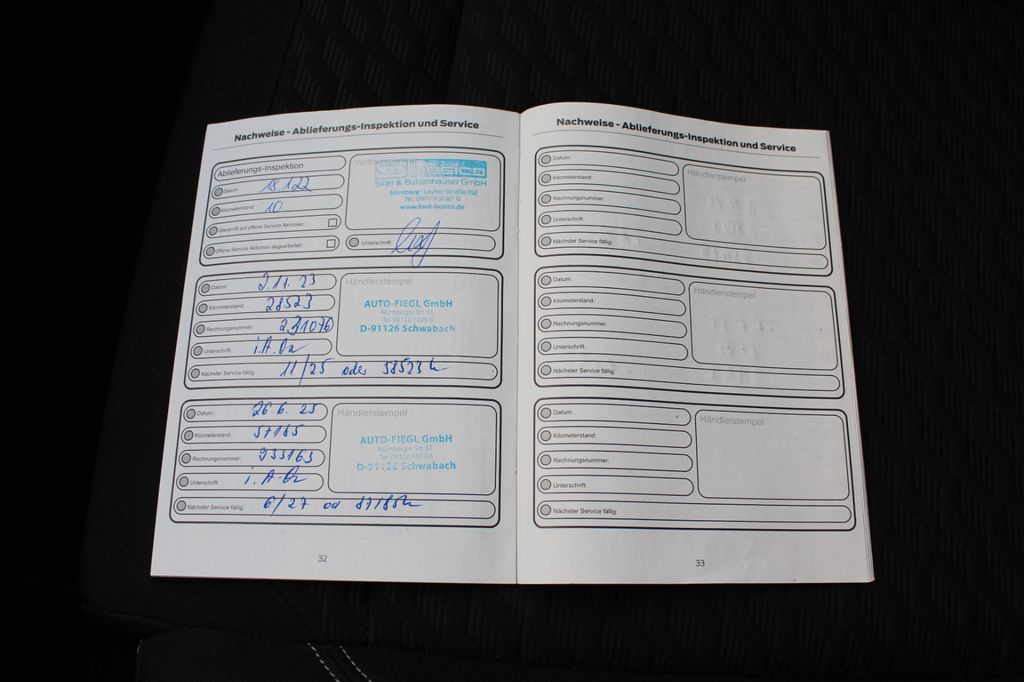 Nachweise - Ablieferungs-Inspektion und Service
Ablieferungs-Inspektion
Datum: 18 1 22
Kilometerstand: 10
Überprüft auf offene Service Aktionen:
Offene Service Aktionen abgearbeitet:
Vertragspartner
Besico
Sauer & Büttenhauser GmbH
Nürnberg · Leyher Straße 112
www.ford-besico.de
Unterschrift:
Datum: 2.11.23
Kilometerstand: 28523
Rechnungsnummer: 231076
Unterschrift: i.A.
Nächster Service fällig: 11/25 oder 58523 k
Händlerstempel
AUTO-FIEGL GmbH
Nürnberger Str. 51
Tel. 09122/1803-0
D-91126 Schwabach
Datum: 26.6.25
Kilometerstand: 57185
Rechnungsnummer: 933163
Unterschrift: i.A.
Nächster Service fällig: 6/27 od 87185k
Händlerstempel
AUTO-FIEGL GmbH
Nürnberger Str. 51
Tel. 09122/1803-0
D-91126 Schwabach
32
Nachweise - Ablieferungs-Inspektion und Service
Datum:
Kilometerstand:
Rechnungsnummer:
Unterschrift:
Nächster Service fällig:
Händlerstempel
Datum:
Kilometerstand:
Rechnungsnummer:
Unterschrift:
Nächster Service fällig:
Händlerstempel
Datum:
Kilometerstand:
Rechnungsnummer:
Unterschrift:
Nächster Service fällig:
Händlerstempel
33